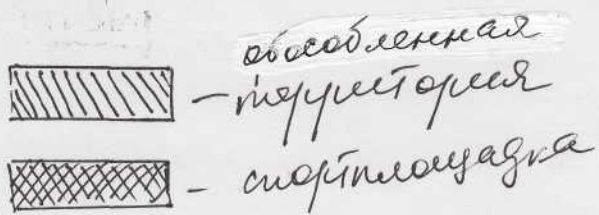 обособленная
- территория
- спортплощадка